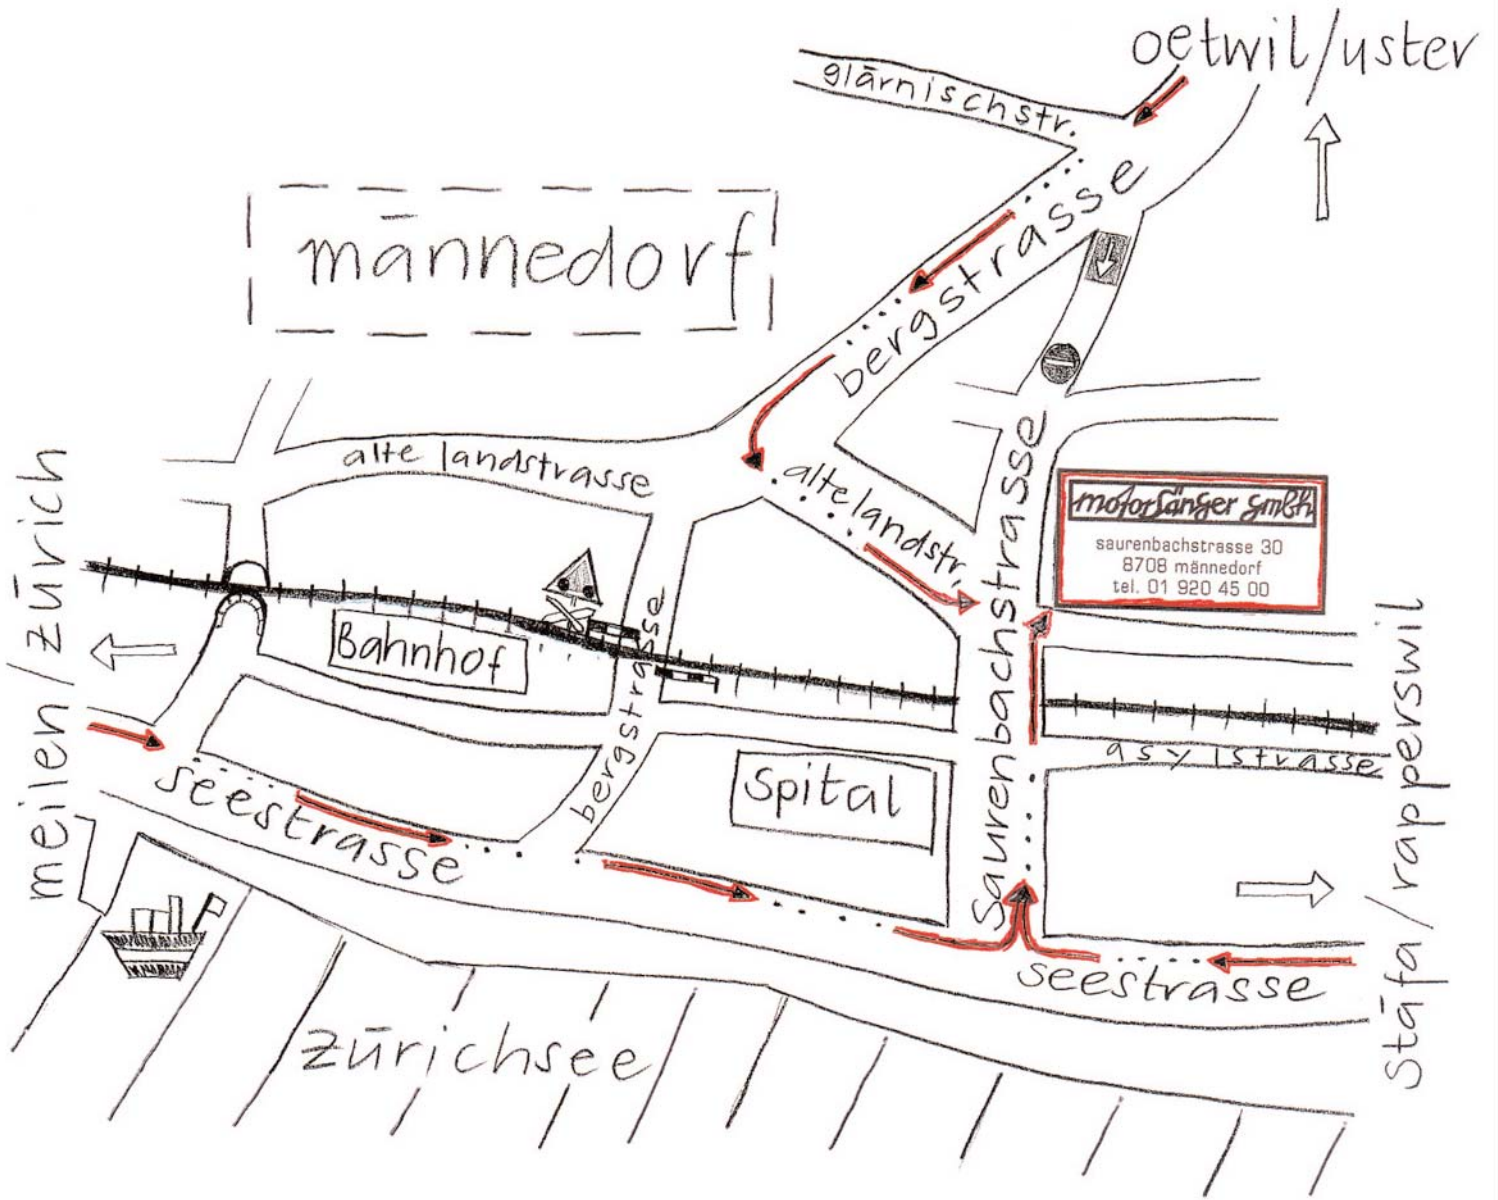 oetwil/uster
glärnischstr.
bergstrasse
männedorf
alte landstrasse
alte landstr.
saurenbachstrasse
motorsänger gmbh
saurenbachstrasse 30
8708 männedorf
tel. 01 920 45 00
meilen/zürich
Bahnhof
bergstrasse
bergstrasse
asylstrasse
Spital
seestrasse
seestrasse
stäfa/rapperswil
zürichsee